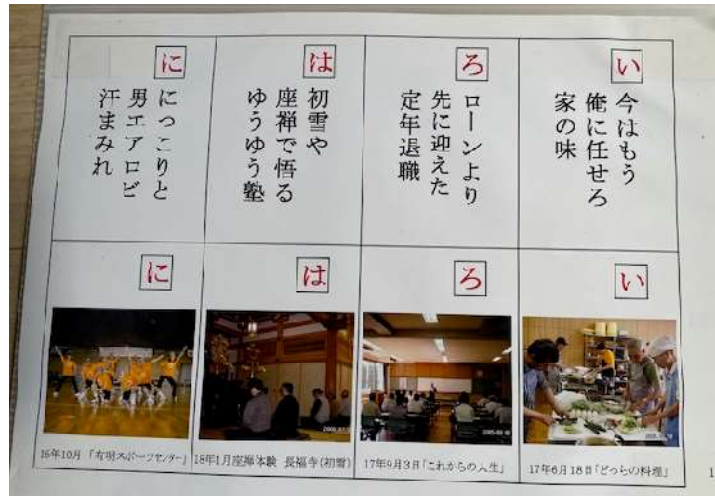 い
今はもう
俺に任せろ
家の味
ろ
ローンより
先に迎えた
定年退職
は
初雪や
座禅で悟る
ゆうゆう塾
に
にっこりと
男エアロビ
汗まみれ
い
ろ
は
に
17年6月18日「どっちの料理」
17年9月3日「これからの人生」
18年1月座禅体験 長福寺(初雪)
16年10月「有明スポーツセンター」
1